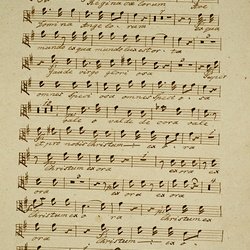 Regina cæ lorum Ave
Domina Ange lo rum ex qua
mundo ex qua mundo lux est or ta
gaude virgo glori osa super
omnes speci osa omnes speci o sa
vale o vale de cora vale
et pro nobis Christum ex o ra
Christum ex ora ex
ora ex ora ex ora
Christum ex o ra Christum ex
ora Christum ex o ra